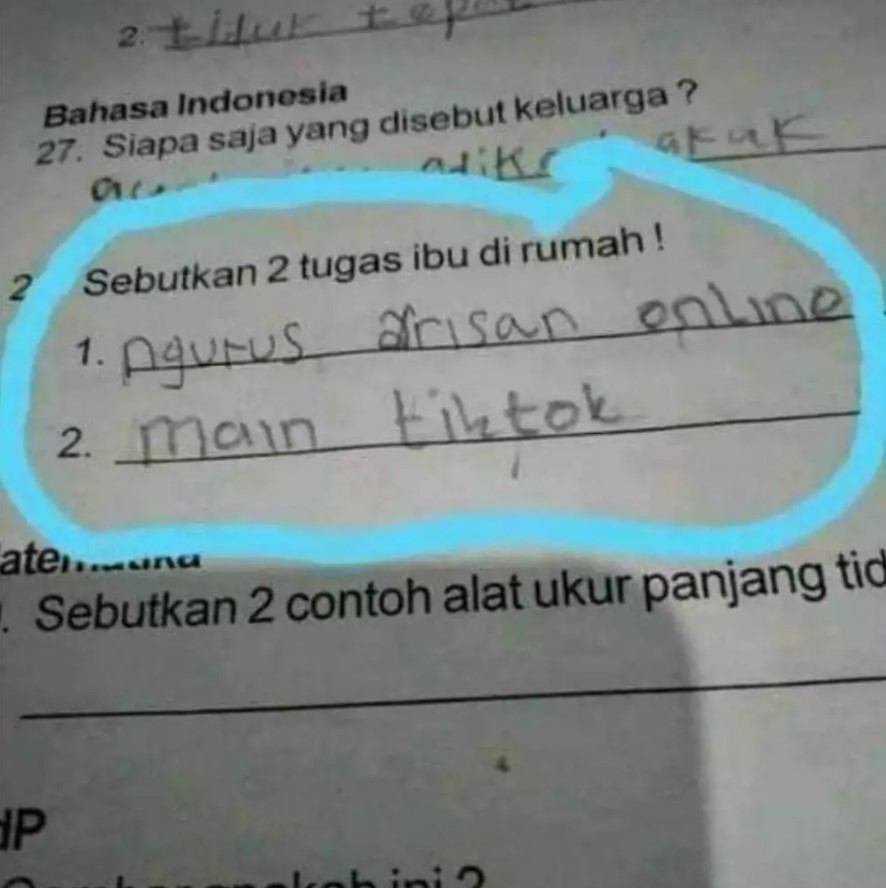 2. tidur
Bahasa Indonesia
27. Siapa saja yang disebut keluarga ?
akak
2 Sebutkan 2 tugas ibu di rumah !
1. ngurus arisan online
2. main tiktok
. Sebutkan 2 contoh alat ukur panjang tid
ini ?